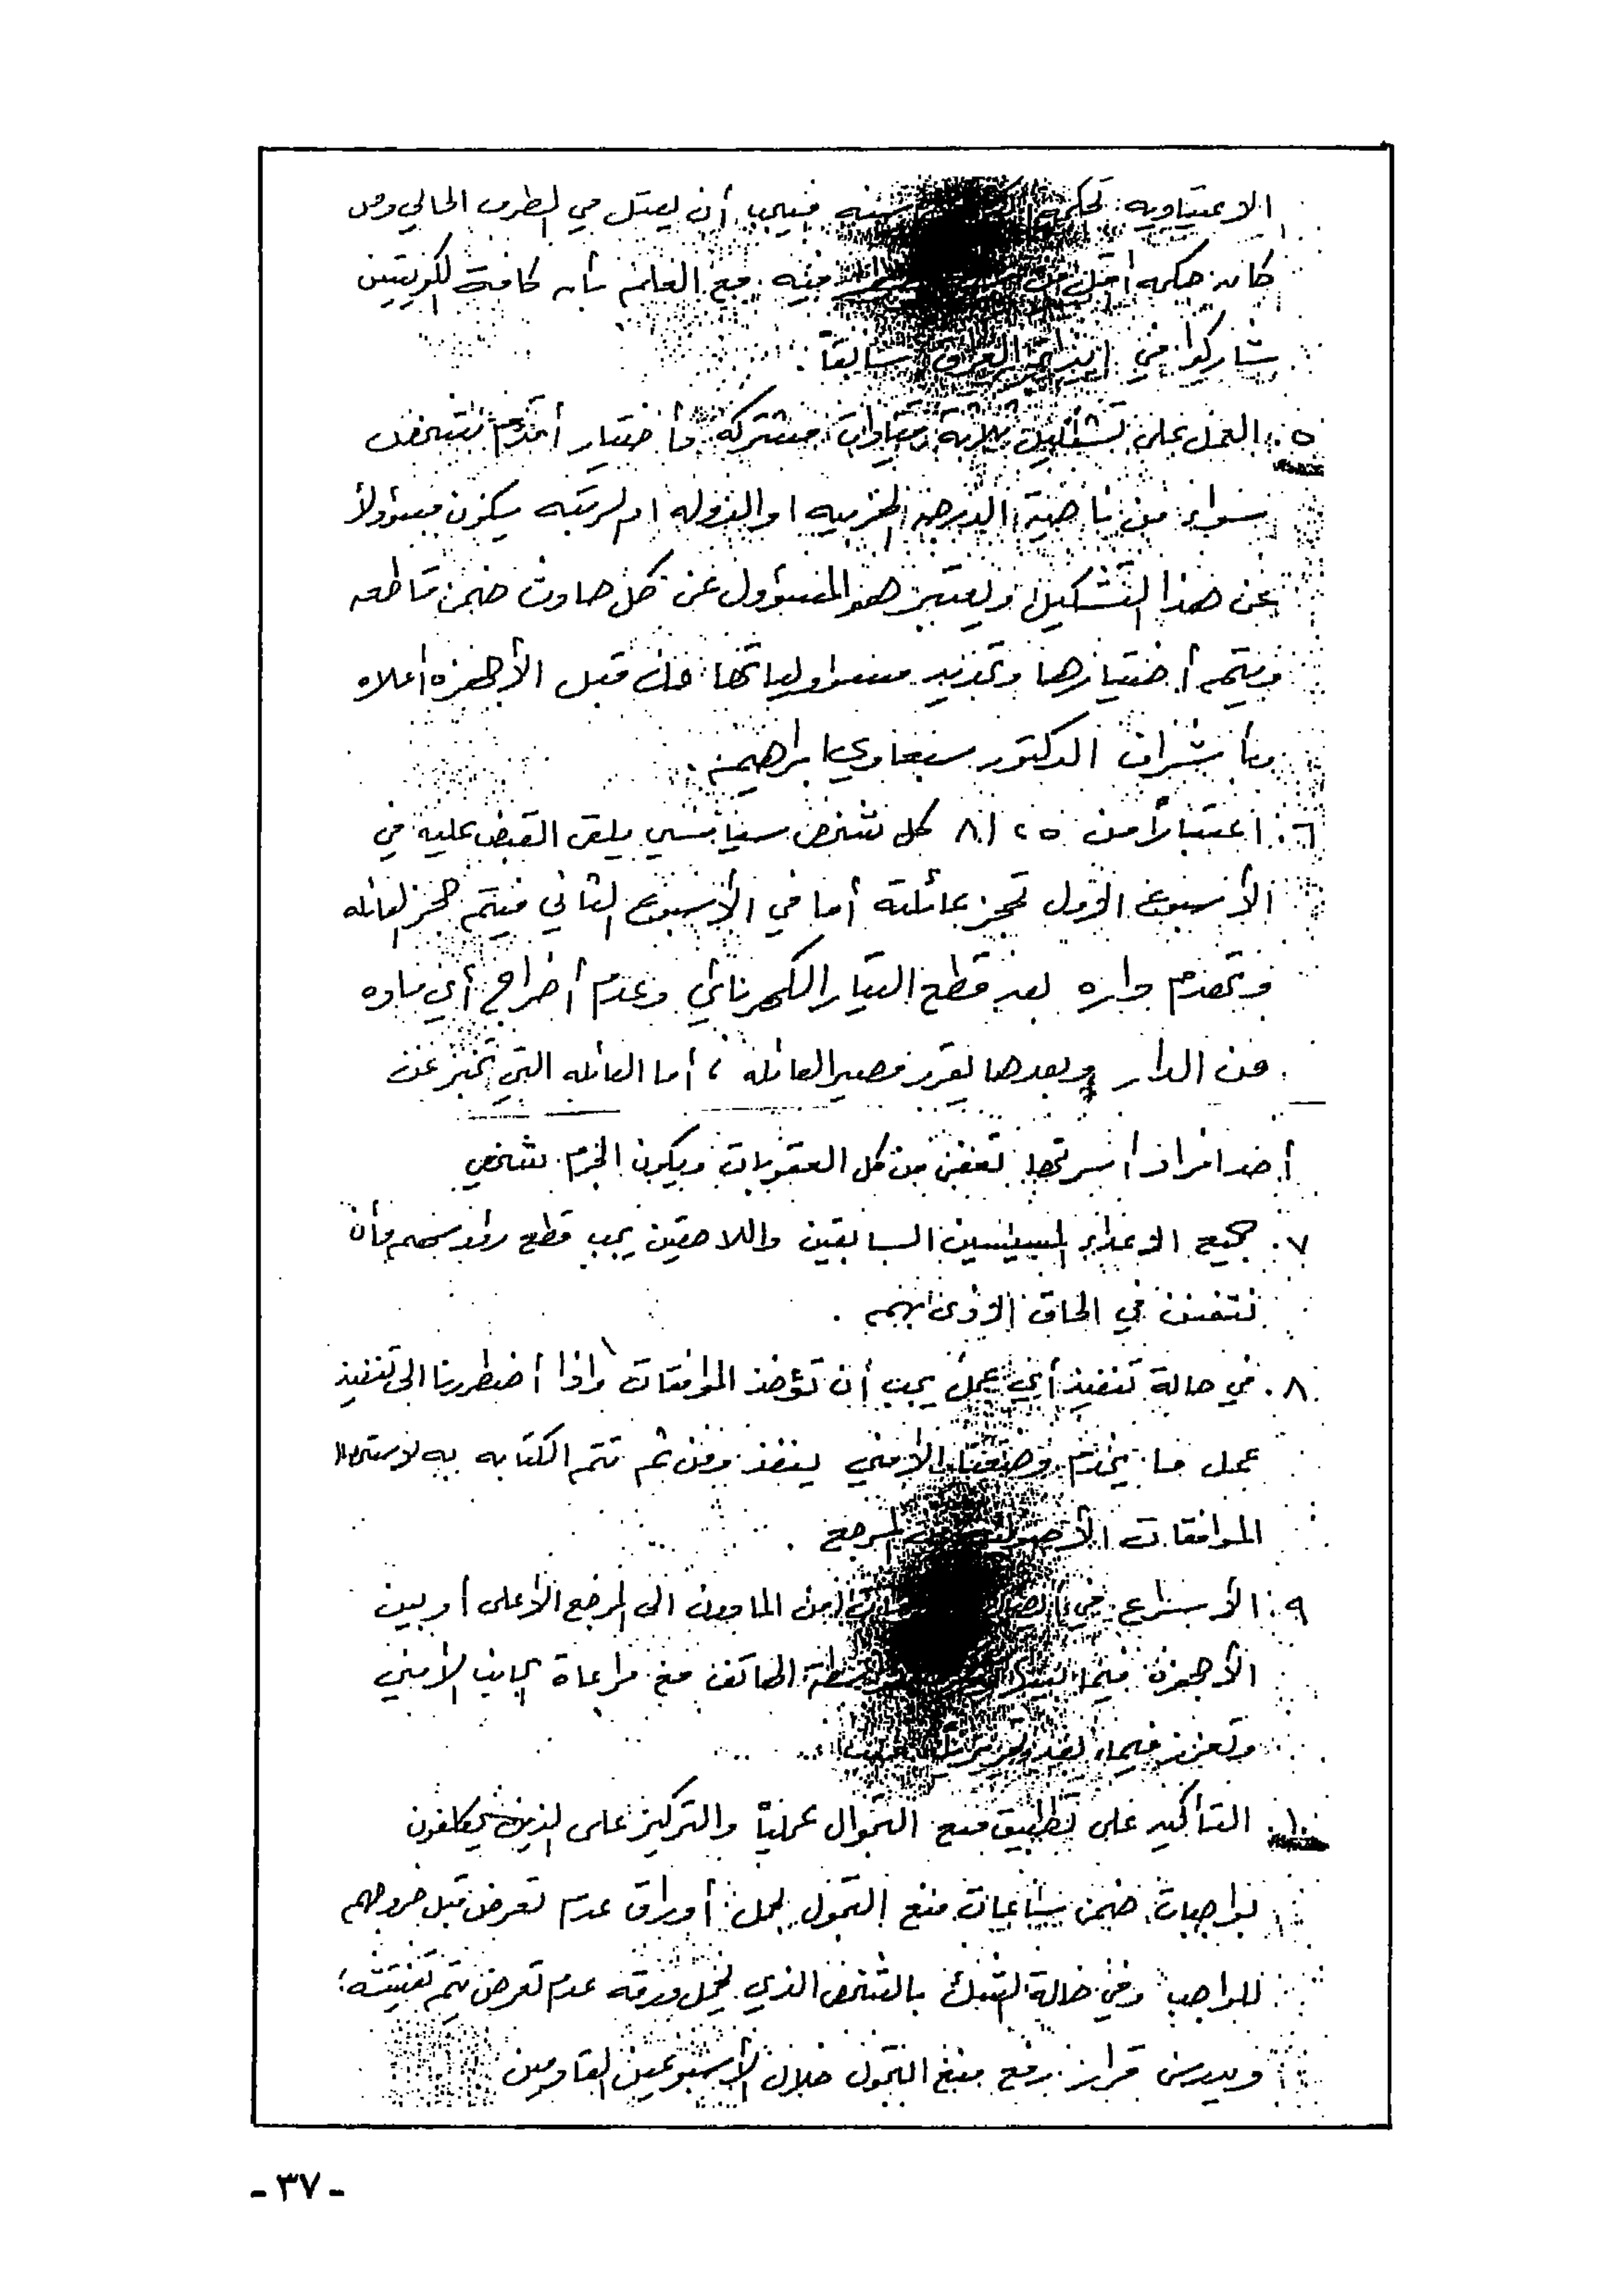 الاعتياديه. تحكمه سنه فيجب أن يعتل في الظرف الحالي ومن
كانت حكمه أقل من فيه. مع العلم بأن كافة الكويتيين
شاركوا في ايذاء العراق سابقاً.
٥. العمل على تشكيل ثلاثة قيادات مشتركة وأختيار أقدم شخص
سواء من ناحية الدرجة الحزبيه او الدوله ام الرتبه يكون مسؤولاً
عن هذا التشكيل ويعتبر هو المسؤول عن كل حادث ضمن قاطعه
ويتم أختيارها وتحديد مسؤولياتها من قبل الأجهزه أعلاه
وبأشراف الدكتور سبعاوي ابراهيم.
٦. اعتباراً من ٢٥ / ٨ كل شخص سياسي يلقى القبض عليه في
الأسبوع الأول تحجز عائلته أما في الأسبوع الثاني فيتم حجز العائله
وتهدم داره بعد قطع التيار الكهربائي وعدم أخراج أي ماده
من الدار وبعدها نقرر مصير العائله ، أما العائله التي تخبر عن
أحد افراد أسرتها تعفى من كل العقوبات ويكون الجرم شخصي
٧. جميع الاعداء السياسيين السابقين واللاحقين يجب قطع رؤوسهم وأن
نتفنن في الحاق الاذى بهم.
٨. في حالة تنفيذ أي عمل يجب أن تؤخذ الموافقات واذا أضطررنا الى تنفيذ
عمل ما يخدم وضعنا الأمني ينفذ ومن ثم تتم الكتابه به لاستحصال
الموافقات الأصولية من المرجع.
٩. الأسراع في من المادون الى المرجع الأعلى أو بين
الأجهزه فيما الهاتف مع مراعاة الجانب الأمني
وتعزز فيما بعد
١٠. التأكيد على تطبيق منع التجوال عملياً والتركيز على الذين يكلفون
بواجبات ضمن ساعات منع التجول بحمل أوراق عدم تعرض قبل خروجهم
للواجب وفي حالة الشك بالشخص الذي يحمل ورقة عدم تعرض يتم تفتيشه؛
ويدرس قرار رفع منع التجول خلال الأسبوعين القادمين
- ٣٧ -